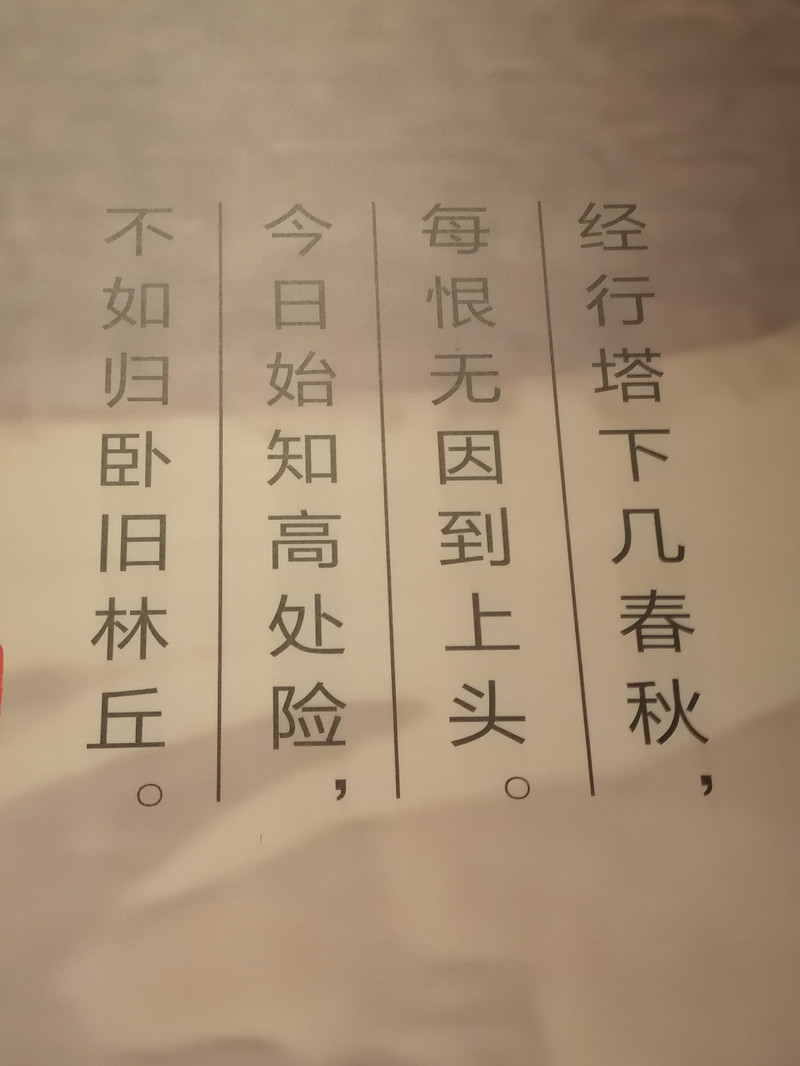 经行塔下几春秋，
每恨无因到上头。
今日始知高处险，
不如归卧旧林丘。